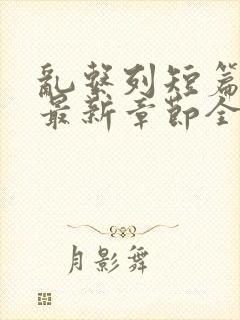 乱繫列短篇
最新章節全
月影舞